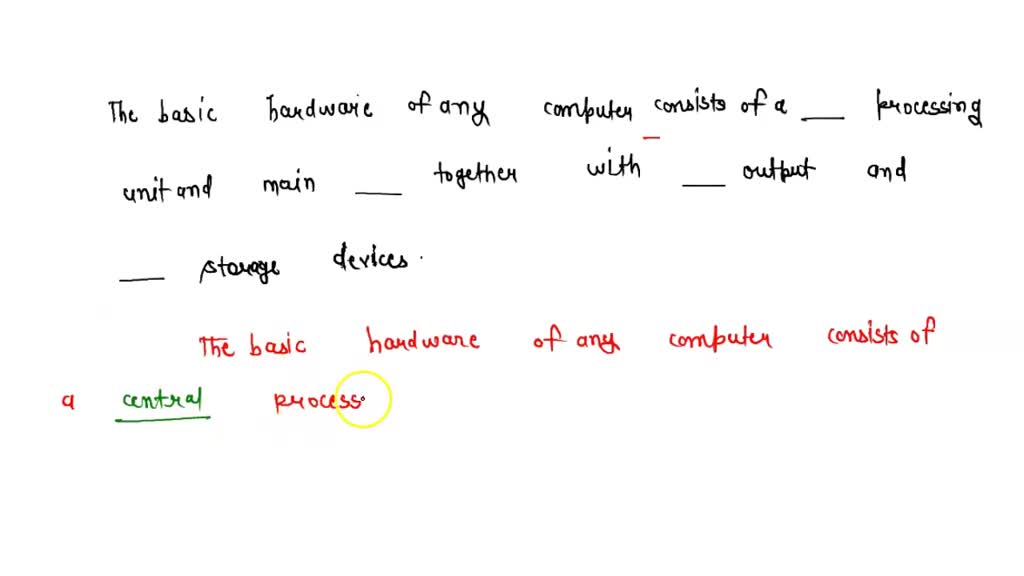 The basic hardware of any computer consists of a ___ processing
unit and main ___ together with ___ output and
___ storage devices.
The basic hardware of any computer consists of
a central process